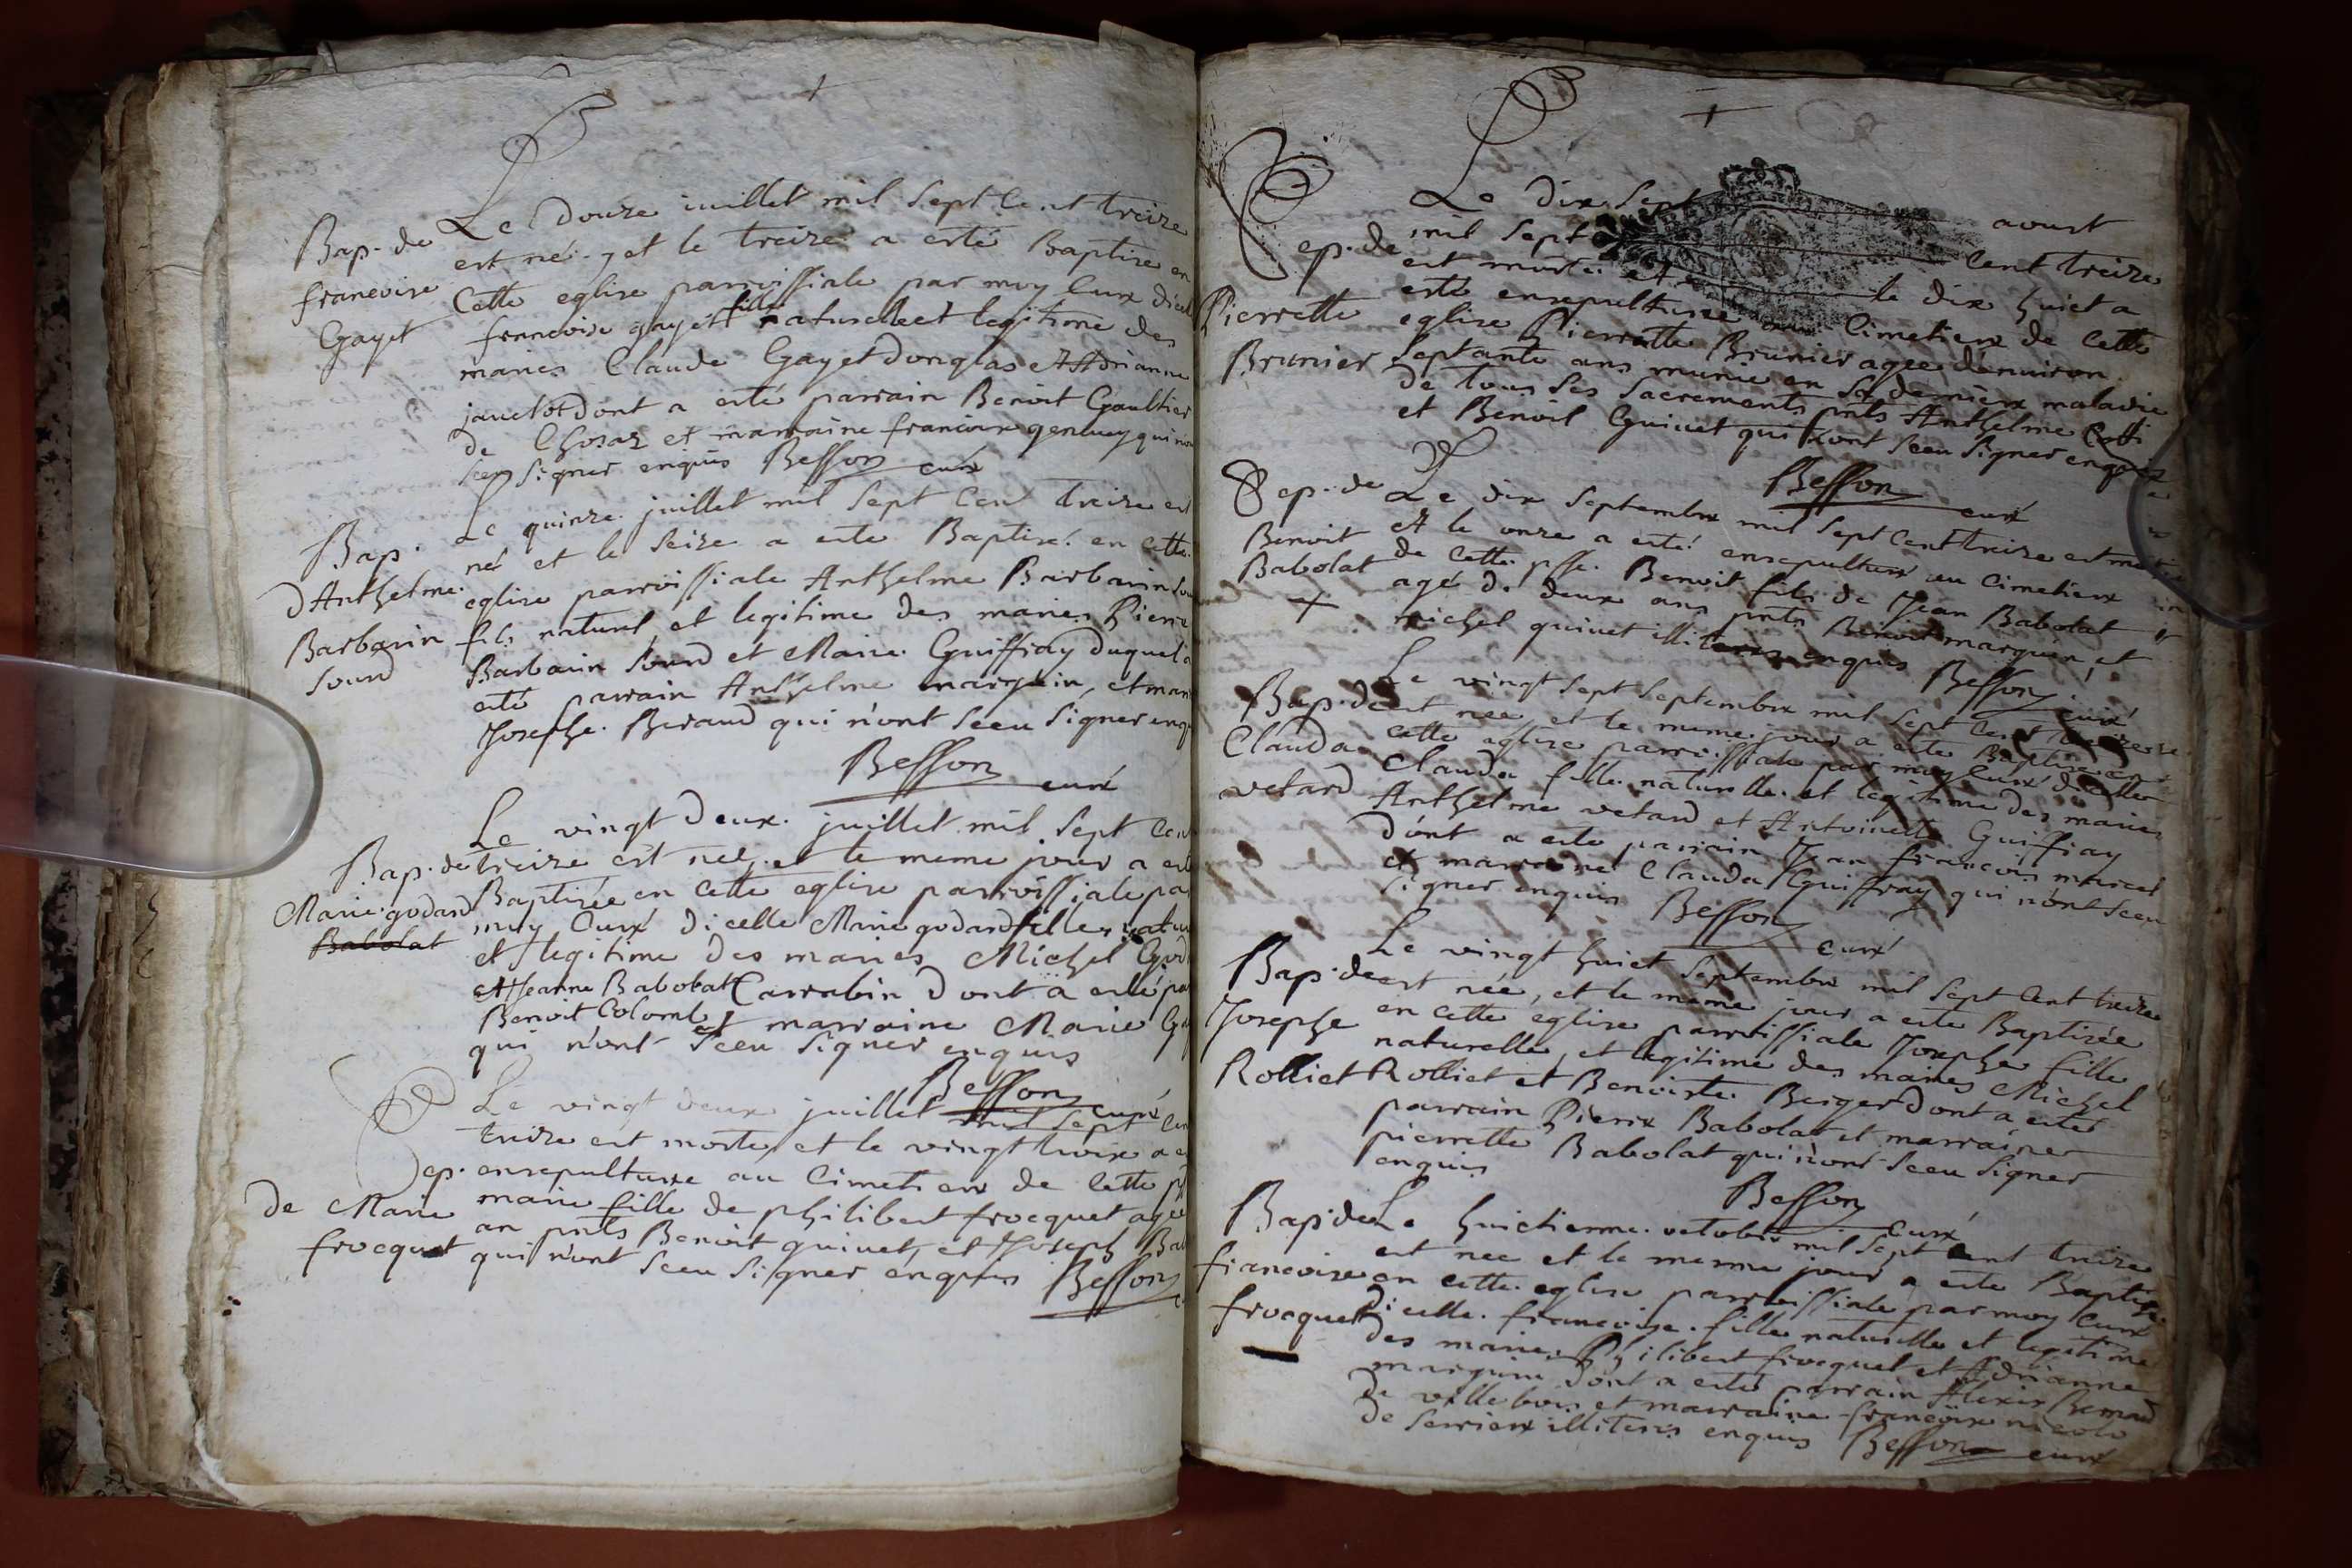 Bap. de
francoise
Gayet
Le Douze juillet mil Sept Cent treize
est né. et le treize a esté Baptize en
Cette eglise parroissiale par moy Curé d'icel
francoise gayet fille naturelle et legitime des
maries Claude Gayet Donglas et Adrianne
jauelot dont a esté parrain Benoit Gaultier
de et marraine francoise qui n'ont
sceu Signer enquis Besson curé
Bap.
d'Anthelme
Barbarin
Sourd
Le quinze juillet mil Sept Cent Treize est
né et le Seize a esté Baptizé en cette
eglise parroissiale Anthelme Barbarin Sou
fils naturel et legitime des maries Pierre
Barbarin Sourd et Marie Guiffray duquel a
esté parrain Anthelme marquin, et mar
Josephe Beraud qui n'ont Sceu Signer enq
Besson curé
Bap. de
Marie godard
Babolat
Le vingt Deux juillet mil Sept Cen
treize est neé et le meme jour a est
Baptizée en Cette eglise parroissiale pa
moy Curé d'icelle Marie godard fille natu
et legitime des maries Michel God
et Jeanne Babolat Carrabin dont a esté pa
Benoit Colomb et marraine Marie
qui n'ont Sceu Signer enquis
Besson curé
Sep.
de Marie
frocquet
Le vingt deux juillet mil Sept Cen
treize est morte et le vingt trois a e
ensepulture au Cimetiere de Cette
marie fille de philibert frocquet agée
an pnts Benoit quinet, et Joseph Bab
qui n'ont Sceu Signer enquis Besson
Sep. de
Pierrette
Brunier
Le dix Sept aoust
mil Sept Cent treize
est morte et le dix huict a
esté ensepulturee au Cimetiere de Cette
eglise Pierrette Brunier agee d'enuiron
Septante ans munie en Sa derniere maladie
de tous Ses Sacrements pnts Anthelme
et Benoit Guinet qui n'ont Sceu Signer enquis
Besson curé
Sep. de
Benoit
Babolat
Le dix Septembre mil Sept Cent treize est mort
et le onze a esté ensepulturé au Cimetiere
de Cette psse. Benoit fils de Jean Babolat
agé de deux ans pnts Benoit marquin et
michel quinet illiteres enquis Besson curé
Bap. de
Clauda
vetard
Le vingt Sept Septembre mil Sept Cent treize
est nee, et le meme jour a esté Baptizee en
Cette eglise parroissiale par moy Curé d'icelle
Clauda fille naturelle et legitime des maries
Anthelme vetard et Antoinette Guiffray
dont a esté parrain Jean francois marcel
et marraine Clauda Guiffray qui n'ont Sceu
Signer enquis Besson curé
Bap. de
Josephe
Rolliet
Le vingt huict Septembre mil Sept Cent treize
est neé, et le meme jour a esté Baptizée
en cette eglise parroissiale Josephe fille
naturelle, et legitime des maries Michel
Rolliet et Benoiste Berger dont a esté
parrain Pierre Babolat et marraine
pierrette Babolat qui n'ont Sceu Signer
enquis
Besson curé
Bap. de
francoise
frocquet
Le huictieme octobre mil Sept Cent treize
est nee et le meme jour a esté Baptize
en cette eglise parroissiale par moy Curé
d'icelle francoise fille naturelle et legitime
des maries Philibert frocquet et Adrianne
marquin dont a esté parrain Alexis Bernard
de villebois et marraine francoise nicolo
de Serriere illiteres enquis Besson curé